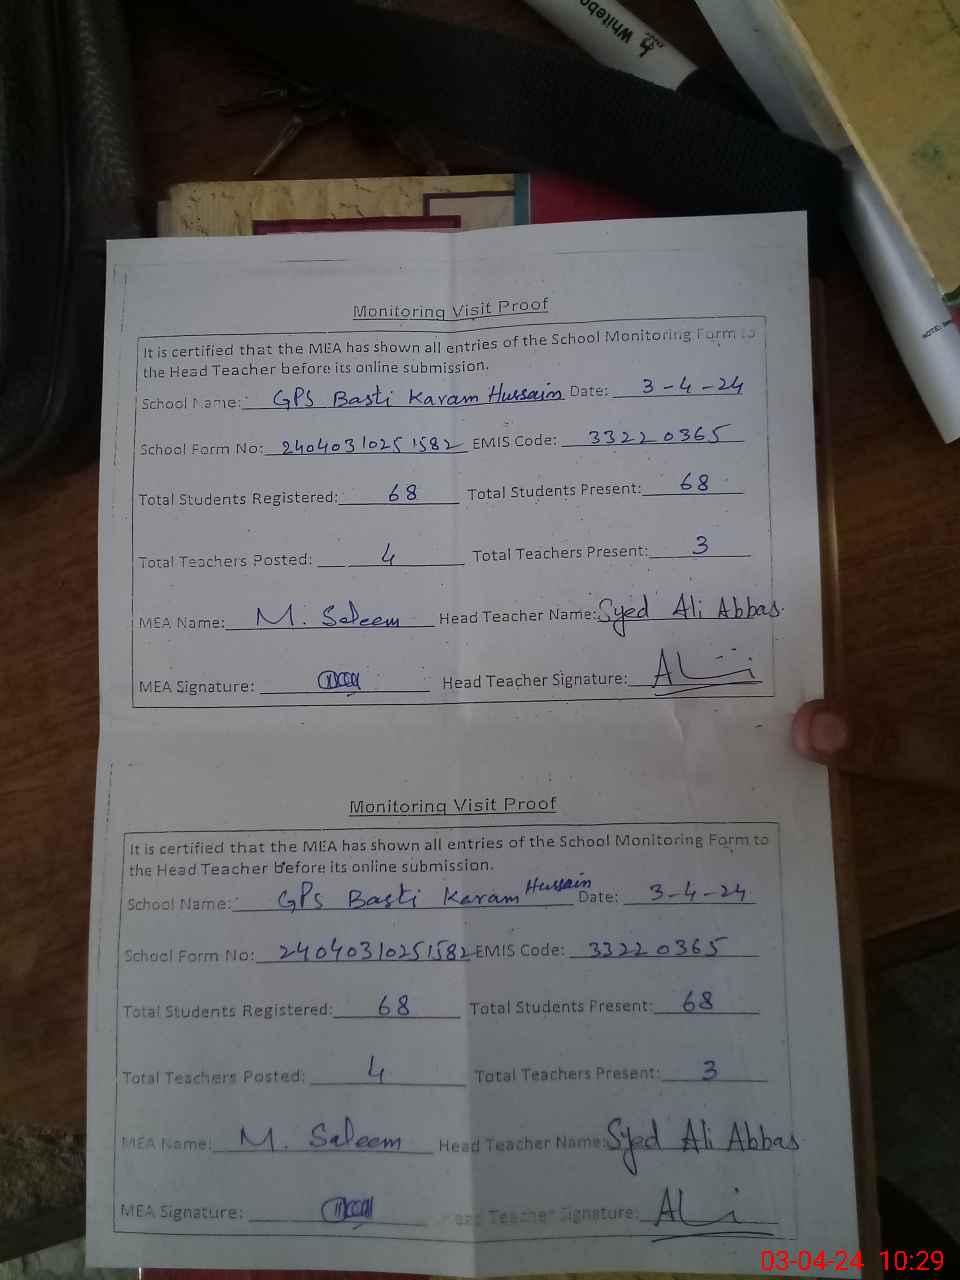 Whiteb
Monitoring Visit Proof
It is certified that the MEA has shown all entries of the School Monitoring Form to
the Head Teacher before its online submission.
School Name: GPS Basti Karam Hussain Date: 3-4-24
School Form No: 24040310251582 EMIS Code: 33220365
Total Students Registered: 68 Total Students Present: 68
Total Teachers Posted: 4 Total Teachers Present: 3
MEA Name: M. Saleem Head Teacher Name: Syed Ali Abbas.
MEA Signature: Head Teacher Signature: ALi
Monitoring Visit Proof
It is certified that the MEA has shown all entries of the School Monitoring Form to
the Head Teacher before its online submission.
School Name: GPS Basti Karam Hussain Date: 3-4-24
School Form No: 24040310251582 EMIS Code: 33220365
Total Students Registered: 68 Total Students Present: 68
Total Teachers Posted: 4 Total Teachers Present: 3
MEA Name: M. Saleem Head Teacher Name: Syed Ali Abbas
MEA Signature: Head Teacher Signature: ALi
03-04-24 10:29